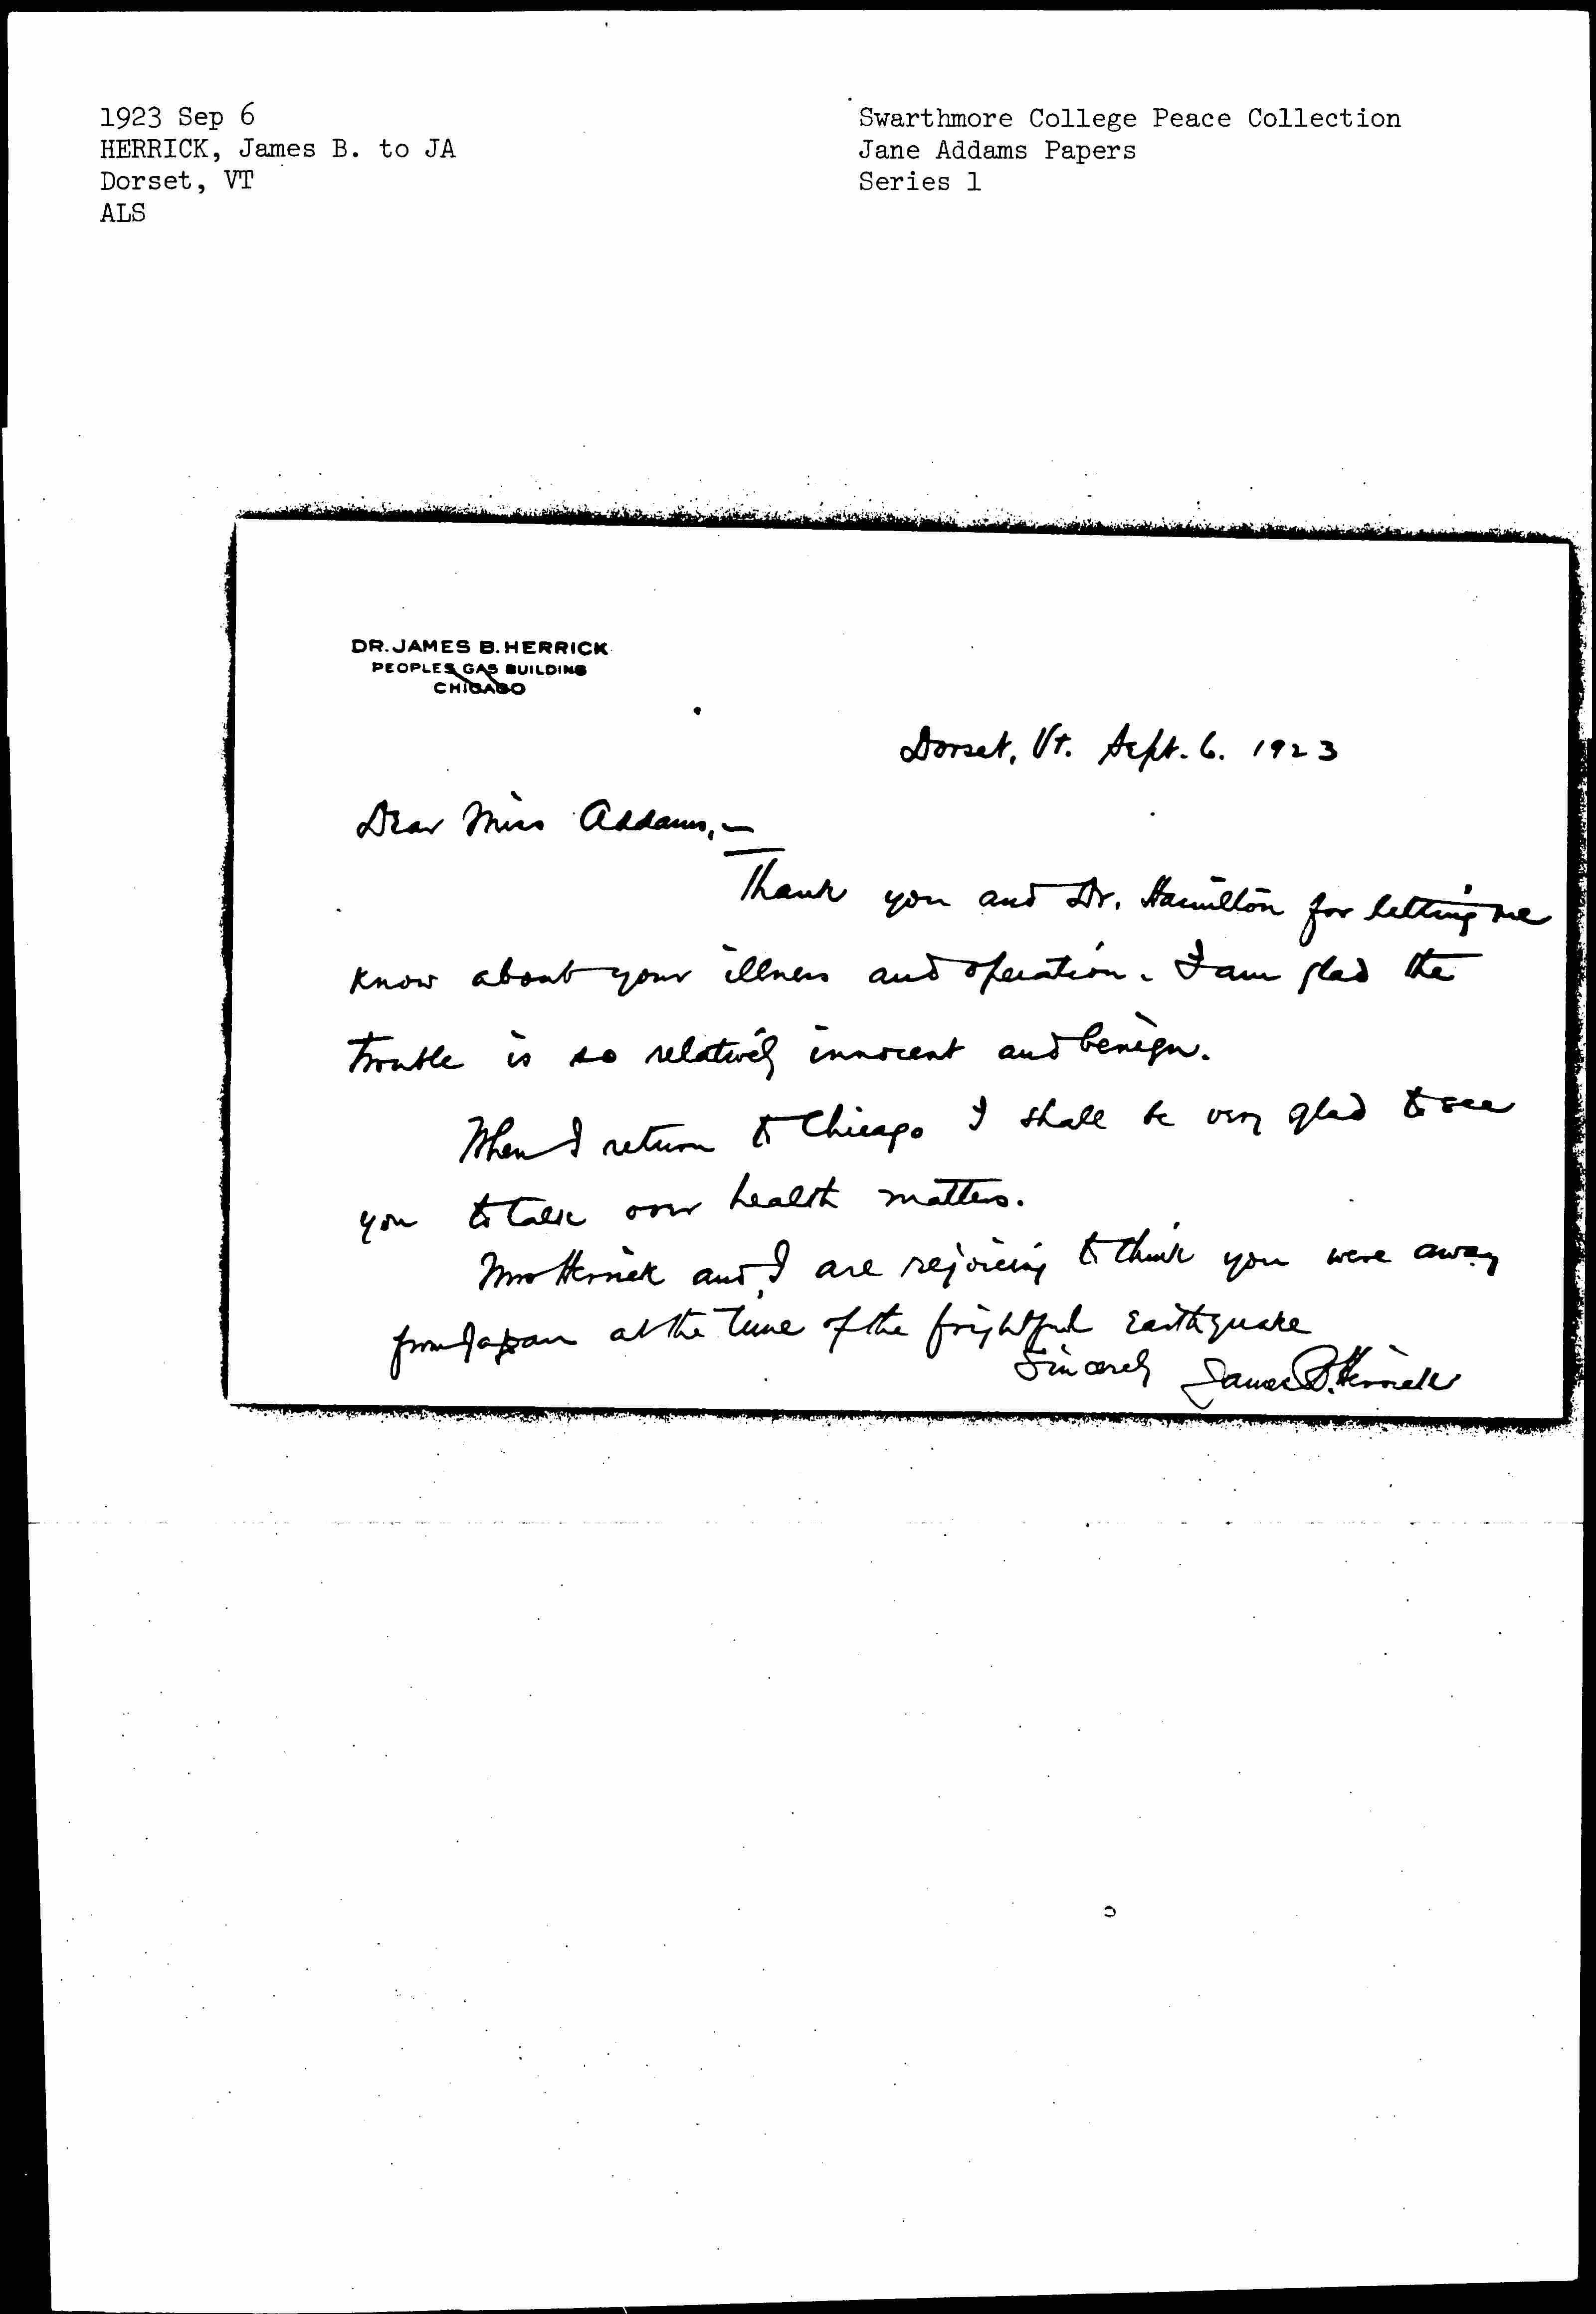 1923 Sep 6
HERRICK, James B. to JA
Dorset, VT
ALS
Swarthmore College Peace Collection
Jane Addams Papers
Series 1
DR. JAMES B. HERRICK
PEOPLES GAS BUILDING
CHICAGO
Dorset, Vt. Sept. 6. 1923
Dear Miss Addams,—
Thank you and Dr. Hamilton for letting me
know about your illness and operation. I am glad the
trouble is so relatively innocent and benign.
When I return to Chicago I shall be very glad to see
you to talk over health matters.
Mrs Herrick and I are rejoicing to think you were away
from Japan at the time of the frightful Earthquake
Sincerely James B. Herrick